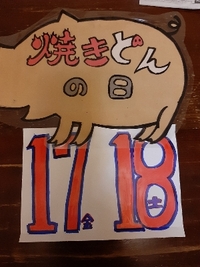 焼きどん
の日
17金 18土